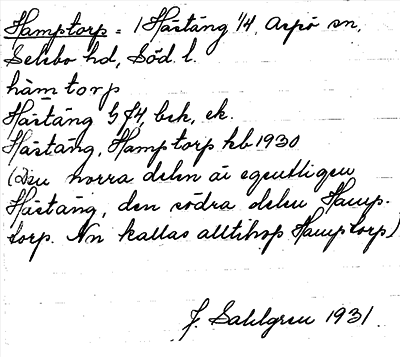 Hamptorp = 1 Hästäng 1/4, Aspö sn,
Selebo hd, Söd. l.
hàmtorp
Hästäng G J4, bsk, ek.
Hästäng, Hamptorp hb 1930
(Den norra delen är egentligen
Hästäng, den södra delen Hamp-
torp. Nn kallas alltihop Hamptorp)
J. Sahlgren 1931